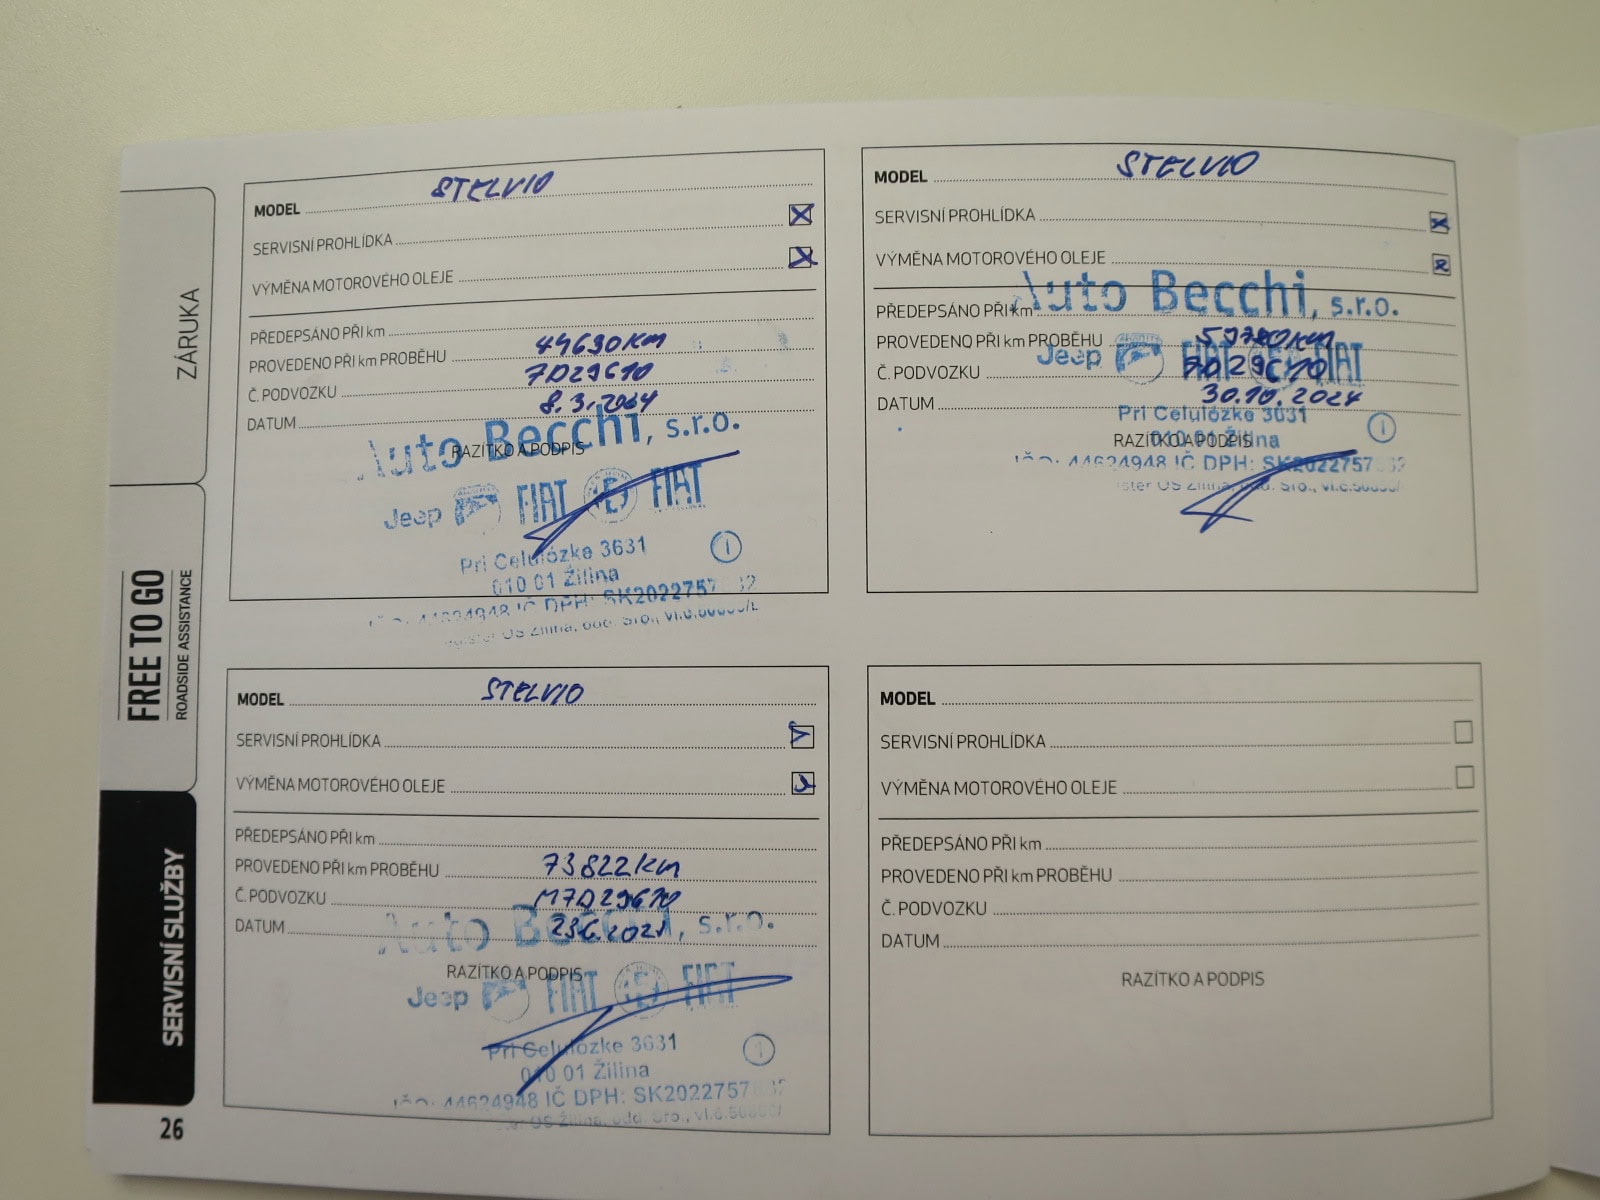 ZÁRUKA
FREE TO GO
ROADSIDE ASSISTANCE
SERVISNÍ SLUŽBY
26
MODEL STELVIO
SERVISNÍ PROHLÍDKA
VÝMĚNA MOTOROVÉHO OLEJE
PŘEDEPSÁNO PŘI km
PROVEDENO PŘI km PROBĚHU 49690 KM
Č. PODVOZKU 7D29610
DATUM 8.3.2024
RAZÍTKO A PODPIS
Auto Becchi, s.r.o.
Jeep FIAT FIAT
Pri Celulózke 3631
010 01 Žilina
IČ DPH: SK2022757
MODEL STELVIO
SERVISNÍ PROHLÍDKA
VÝMĚNA MOTOROVÉHO OLEJE
Auto Becchi, s.r.o.
PŘEDEPSÁNO PŘI km
PROVEDENO PŘI km PROBĚHU
Jeep FIAT FIAT
Č. PODVOZKU
DATUM 30.10.2024
Pri Celulózke 3631
RAZÍTKO A PODPIS
010 01 Žilina
IČO: 44624948 IČ DPH: SK2022757
MODEL STELVIO
SERVISNÍ PROHLÍDKA
VÝMĚNA MOTOROVÉHO OLEJE
PŘEDEPSÁNO PŘI km
PROVEDENO PŘI km PROBĚHU 73822 KM
Č. PODVOZKU M7D29610
DATUM
Auto Becchi, s.r.o.
RAZÍTKO A PODPIS
Jeep FIAT FIAT
Pri Celulózke 3631
010 01 Žilina
IČO: 44624948 IČ DPH: SK2022757
MODEL
SERVISNÍ PROHLÍDKA
VÝMĚNA MOTOROVÉHO OLEJE
PŘEDEPSÁNO PŘI km
PROVEDENO PŘI km PROBĚHU
Č. PODVOZKU
DATUM
RAZÍTKO A PODPIS